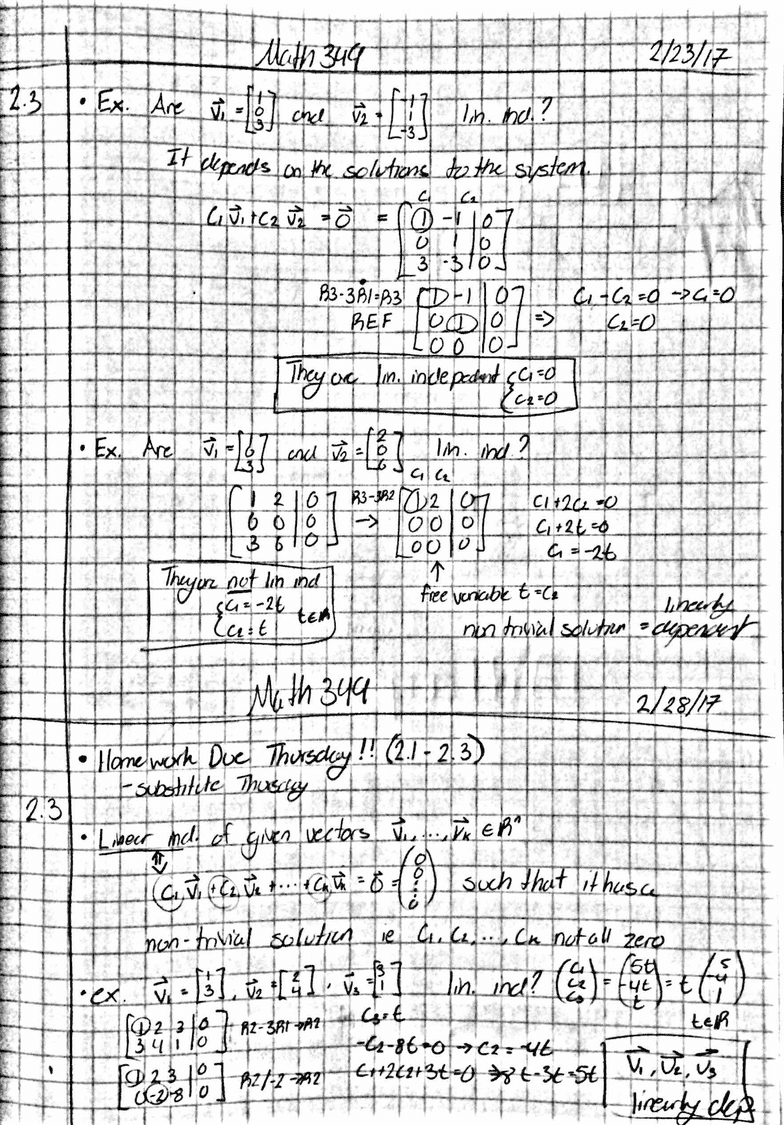 Math 349 2/23/17
2.3 • Ex. Are v⃗1 = [1 0 3] and v⃗2 = [-1 1 -3] lin. ind.?
It depends on the solutions to the system.
C1 C2
C1 v⃗1 + C2 v⃗2 = 0⃗ = [1 -1 | 0
0 1 | 0
3 -3 | 0]
R3-3R1=R3 [1 -1 | 0 C1 - C2 = 0 → C1 = 0
REF 0 1 | 0 ⇒ C2 = 0
0 0 | 0]
They are lin. independent { C1 = 0
C2 = 0
• Ex. Are v⃗1 = [1 0 3] and v⃗2 = [2 0 6] lin. ind?
C1 C2
[1 2 | 0 R3-3R2 [1 2 | 0 C1+2C2=0
0 0 | 0 → 0 0 | 0 C1+2t=0
3 6 | 0] 0 0 | 0] C1 = -2t
↑
They are not lin ind free variable t = C2
{ C1 = -2t linearly
C2 = t t∈ℝ non trivial solution = dependent
Math 349 2/28/17
• Homework Due Thursday!! (2.1 - 2.3)
- substitute Thursday
2.3
• Linear ind. of given vectors v⃗1, ..., v⃗k ∈ ℝⁿ
⇕
C1 v⃗1 + C2 v⃗2 + ··· + Ck v⃗k = 0⃗ = (0 0 ⋮ 0) such that it has a
non-trivial solution ie C1, C2, ..., Ck not all zero
• ex. v⃗1 = [1 3], v⃗2 = [2 4], v⃗3 = [3 1] lin. ind? (C1 C2 C3) = (5t -4t t) = t (5 -4 1)
t∈ℝ
[1 2 3 | 0 R2-3R1→R2 C3=t
3 4 1 | 0] -C2-8t=0 → C2=-4t
[1 2 3 | 0 R2/-2→R2 C1+2C2+3t=0 → 8t-3t=5t
0 -2 -8 | 0]
v⃗1, v⃗2, v⃗3
linearly dep.